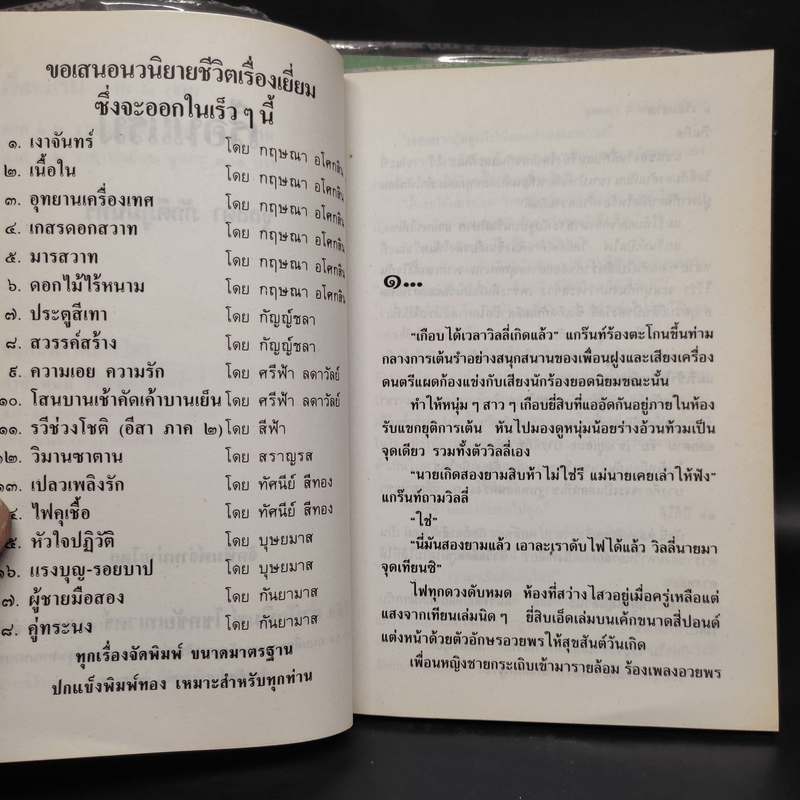 ขอเสนอนวนิยายชีวิตเรื่องเยี่ยม
ซึ่งจะออกในเร็ว ๆ นี้
๑. เงาจันทร์ โดย กฤษณา อโศกสิน
๒. เนื้อใน โดย กฤษณา อโศกสิน
๓. อุทยานเครื่องเทศ โดย กฤษณา อโศกสิน
๔. เกสรดอกสวาท โดย กฤษณา อโศกสิน
๕. มารสวาท โดย กฤษณา อโศกสิน
๖. ดอกไม้ไร้หนาม โดย กฤษณา อโศกสิน
๗. ประตูสีเทา โดย กัญญ์ชลา
๘. สวรรค์สร้าง โดย กัญญ์ชลา
๙. ความเอย ความรัก โดย ศรีฟ้า ลดาวัลย์
๑๐. โสนบานเช้าคัดเค้าบานเย็น โดย ศรีฟ้า ลดาวัลย์
๑๑. รวีช่วงโชติ (อีสา ภาค ๒) โดย สีฟ้า
๑๒. วิมานซาตาน โดย สราญรส
๑๓. เปลวเพลิงรัก โดย ทัศนีย์ สีทอง
๔. ไฟคุเชื้อ โดย ทัศนีย์ สีทอง
๕. หัวใจปฏิวัติ โดย บุษยมาส
๑๖. แรงบุญ-รอยบาป โดย บุษยมาส
๗. ผู้ชายมือสอง โดย กันยามาส
๘. คู่ทระนง โดย กันยามาส
ทุกเรื่องจัดพิมพ์ ขนาดมาตรฐาน
ปกแข็งพิมพ์ทอง เหมาะสำหรับทุกท่าน
๑...
"เกือบได้เวลาวิลลี่เกิดแล้ว" แกร๊นท์ร้องตะโกนขึ้นท่าม
กลางการเต้นรำอย่างสนุกสนานของเพื่อนฝูงและเสียงเครื่อง
ดนตรีแผดก้องแข่งกับเสียงนักร้องยอดนิยมขณะนั้น
ทำให้หนุ่ม ๆ สาว ๆ เกือบยี่สิบที่แออัดกันอยู่ภายในห้อง
รับแขกยุติการเต้น หันไปมองดูหนุ่มน้อยร่างอ้วนท้วมเป็น
จุดเดียว รวมทั้งตัววิลลี่เอง
"นายเกิดสองยามสิบห้าไม่ใช่รึ แม่นายเคยเล่าให้ฟัง"
แกร๊นท์ถามวิลลี่
"ใช่"
"นี่มันสองยามแล้ว เอาละเราดับไฟได้แล้ว วิลลี่นายมา
จุดเทียนซิ"
ไฟทุกดวงดับหมด ห้องที่สว่างไสวอยู่เมื่อครู่เหลือแต่
แสงจากเทียนเล่มนิด ๆ ยี่สิบเอ็ดเล่มบนเค้กขนาดสี่ปอนด์
แต่งหน้าด้วยตัวอักษรอวยพรให้สุขสันต์วันเกิด
เพื่อนหญิงชายกระเถิบเข้ามารายล้อม ร้องเพลงอวยพร